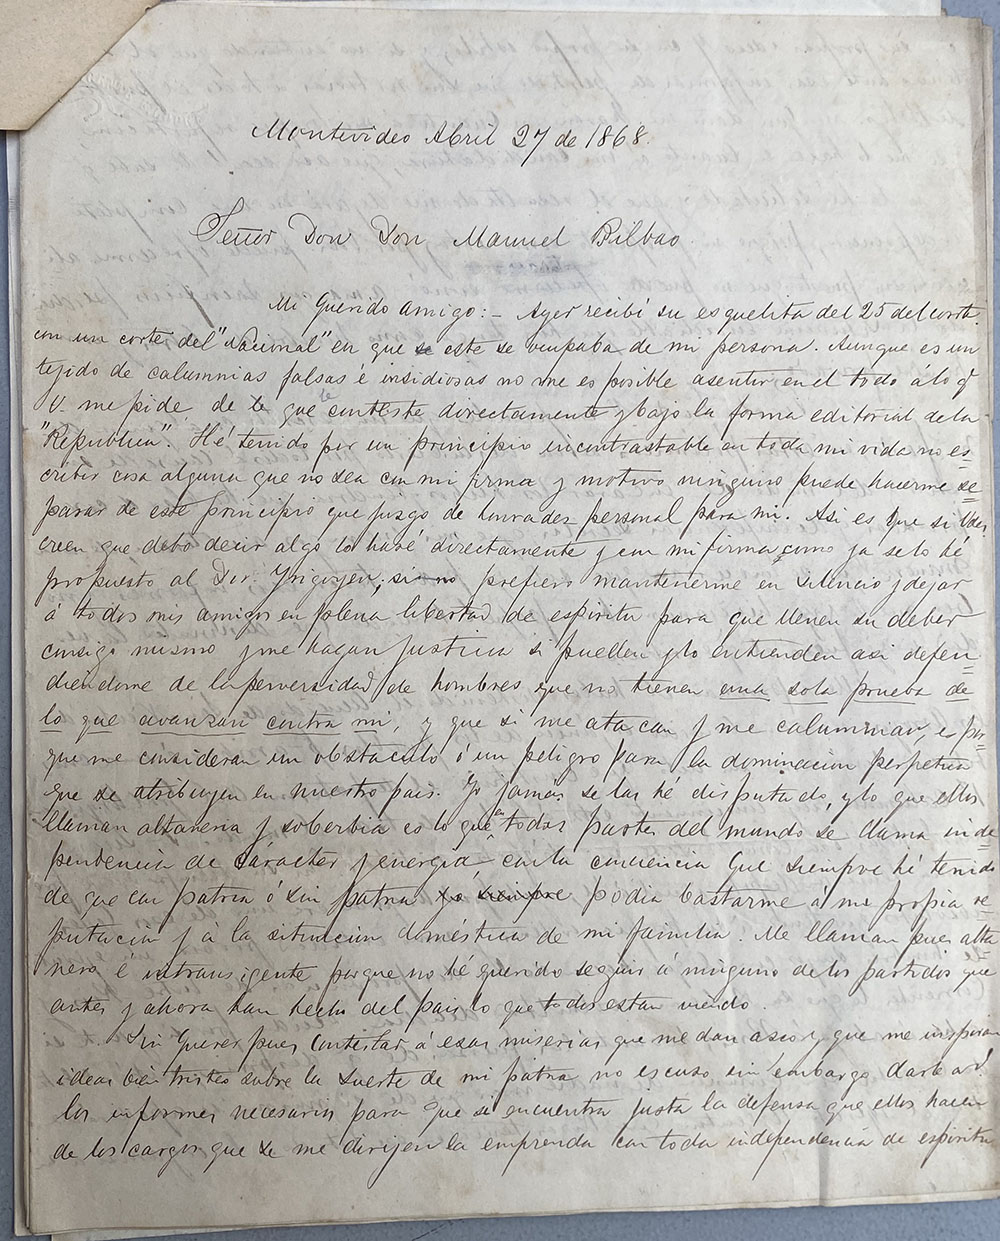 Montevideo Abril 27 de 1868.
Señor Don Don Manuel Bilbao.
Mi Querido amigo: – Ayer recibí su esquelita del 25 del corrte.
con un corte del "Nacional" en que se este se ocupaba de mi persona. Aunque es un
tejido de calumnias falsas é insidiosas no me es posible asentir en el todo á lo q.
V. me pide de que le conteste directamente y bajo la forma editorial de la
"Republica". Hé tenido por un principio incontrastable en toda mi vida no es=
cribir cosa alguna que no sea con mi firma y motivo ninguno puede hacerme se=
parar de este principio que juzgo de honradez personal para mi. Asi es que si Udes.
creen que debo decir algo lo haré directamente y con mi firma, como ya se lo hé
propuesto al Dor. Yrigoyen; si no prefiero mantenerme en silencio y dejar
á todos mis amigos en plena libertad de espiritu para que llenen su deber
consigo mismo y me hagan justicia si pueden y lo entienden asi defen=
diéndome de la perversidad de hombres que no tienen una sola prueba de
lo que avanzan contra mi, y que si me atacan y me calumnian, es por=
que me consideran un obstaculo ó un peligro para la dominacion perpetua
que se atribuyen en nuestro pais. Yo jamás se las hé disputado, y lo que ellos
llaman altaneria y soberbia es lo que en todas partes del mundo se llama inde=
pendencia de cáracter y energia, con la conciencia que siempre hé tenido
de que con patria ó sin patria yo siempre podia bastarme á mi propia re=
putacion y á la situacion doméstica de mi familia. Me llaman pues alta
nero é intransigente porque no hé querido seguir á ninguno de los partidos que
antes y ahora han hecho del pais lo que todos estan viendo.
Sin querer pues contestar á esas miserias que me dan asco y que me inspiran
ideas bien tristes sobre la suerte de mi patria no escuso sin embargo darle a Vd.
los informes necesarios para que si encuentra justa la defensa que ellos hacen
de los cargos que se me dirijen la emprenda con toda independencia de espiritu